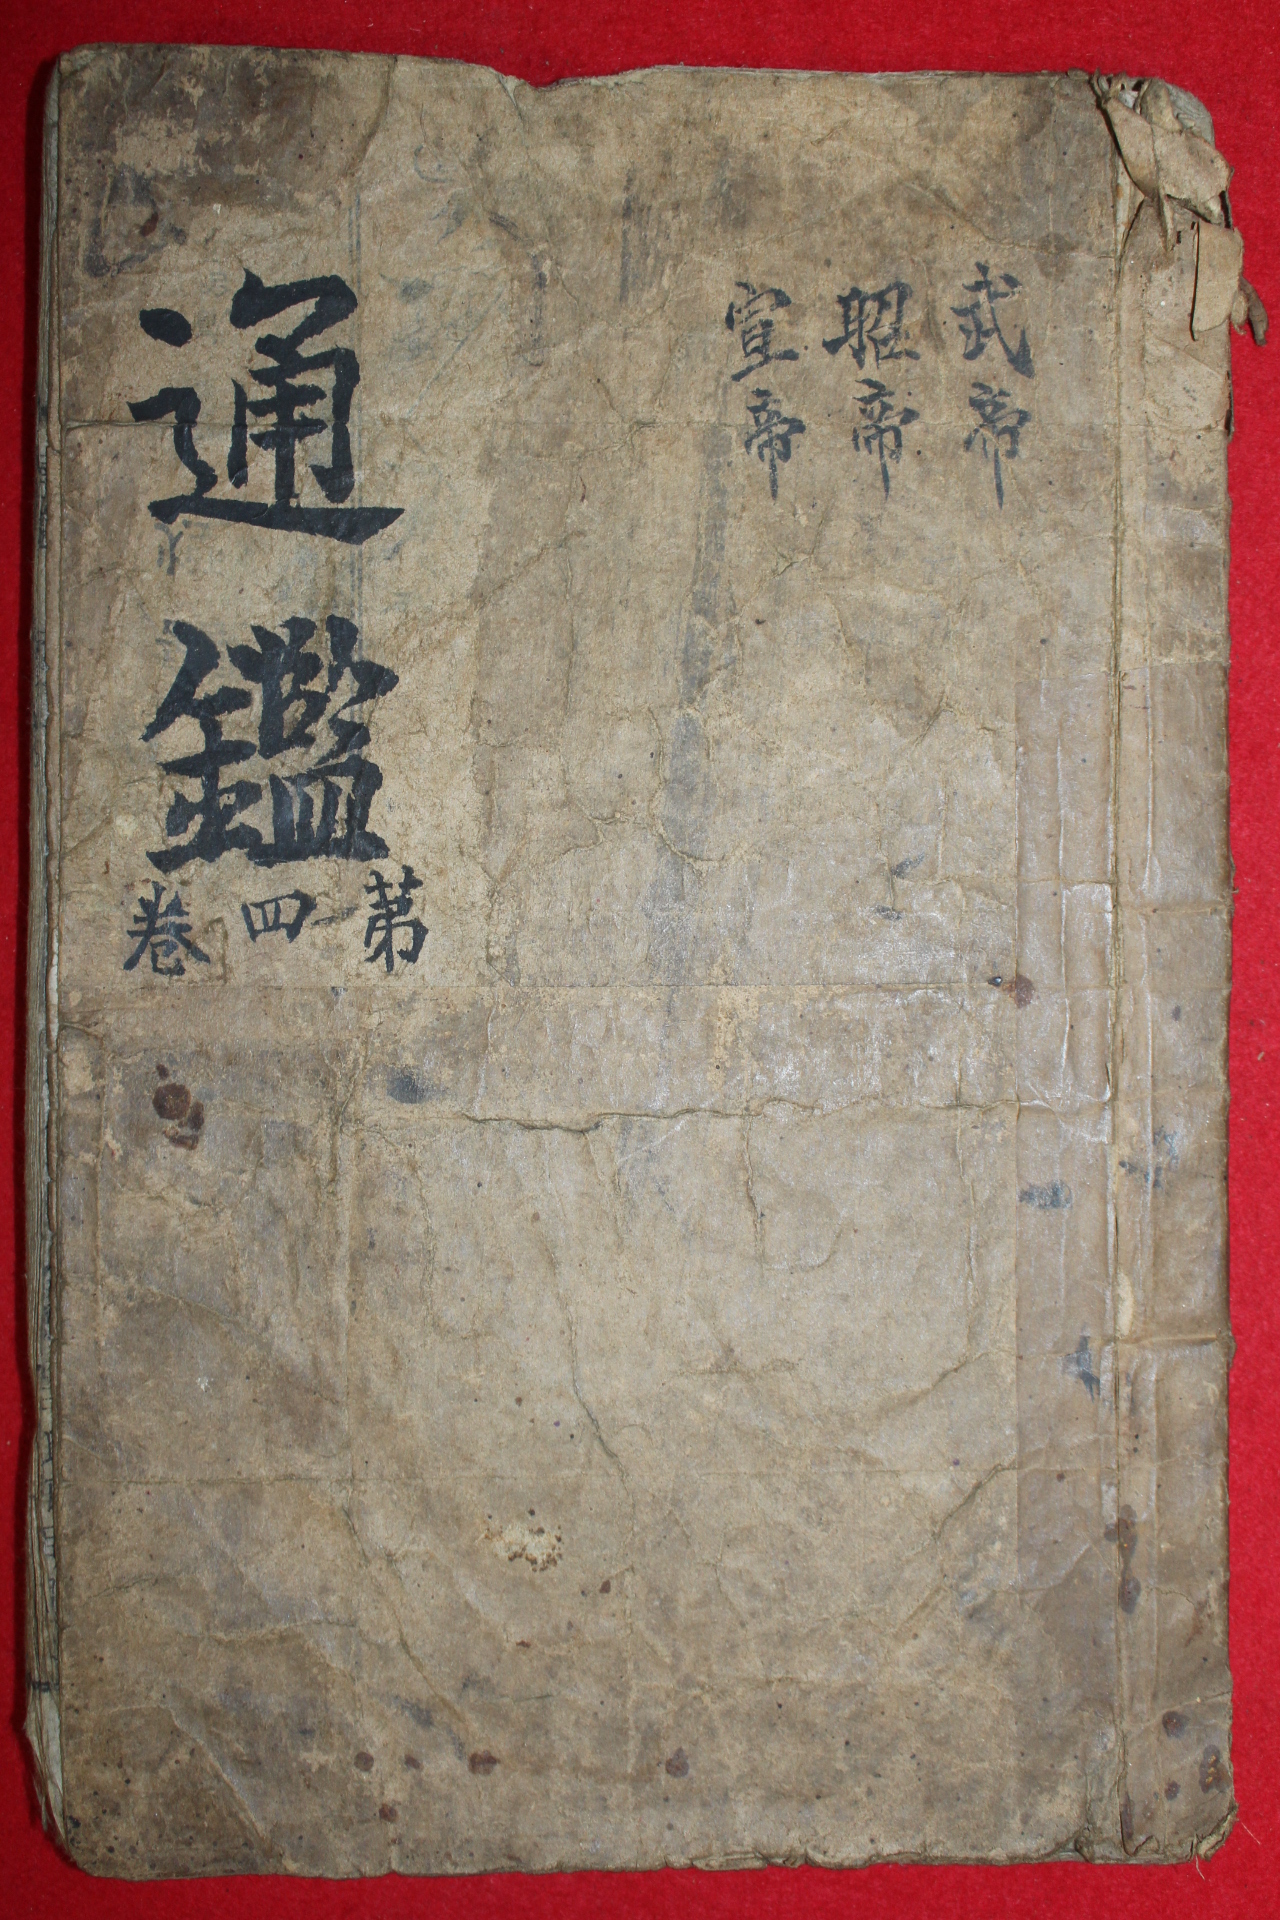 武帝
昭帝
宣帝
通鑑
第四卷